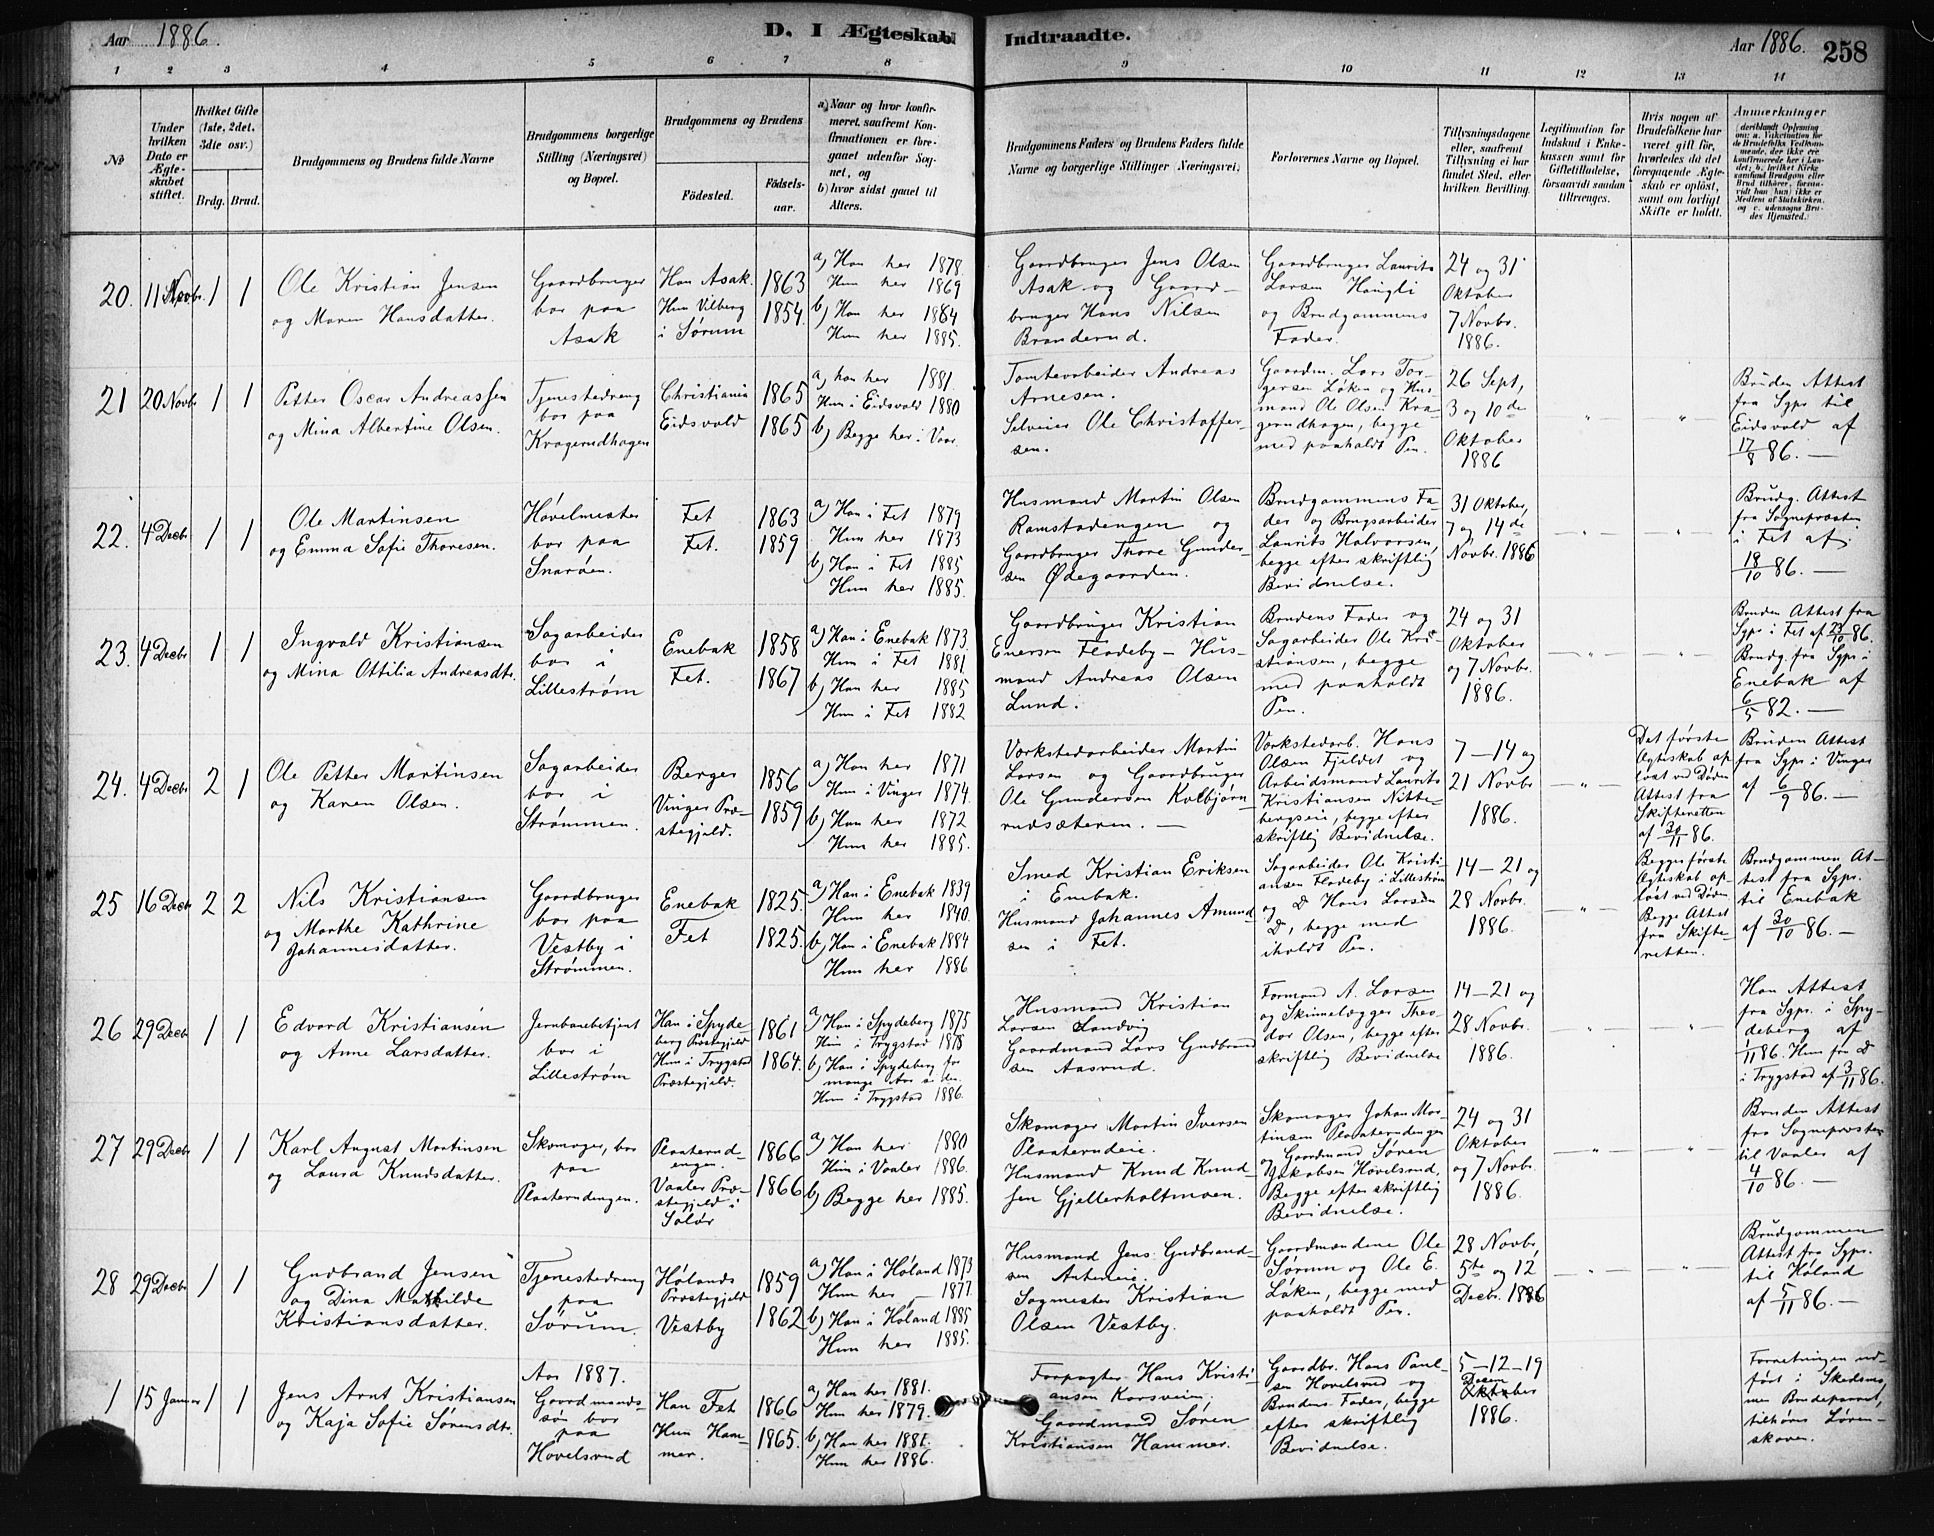 Aar 1886.
D. I Ægteskab
Indtraadte.
Aar 1886.
258
1 2 3 4 5 6 7 8 9 10 11 12 13 14
No
Under hvilken Dato er Ægteskabet stiftet.
Hvilket Gifte (1ste, 2det, 3die osv.)
Brdg. Brud.
Brudgommens og Brudens fulde Navne
Brudgommens borgerlige Stilling (Næringsvei) og Bopæl.
Brudgommens og Brudens
Födested.
Födselsaar.
a) Naar og hvor konfirmeret, saafremt Konfirmationen er foregaaet udenfor Sognet, og
b) hvor sidst gaaet til Alters.
Brudgommens Faders og Brudens Faders fulde Navne og borgerlige Stillinger (Næringsvei).
Forlovernes Navne og Bopæl.
Tillysningsdagene eller, saafremt Tillysning ei har fundet Sted, efter hvilken Bevilling.
Legitimation for Indskud i Enkekassen samt for Giftetilladelse, forsaavidt saadan tiltrænges.
Hvis nogen af Brudefolkene har været gift för, hvorledes da det foregaaende Ægteskab er oplöst, samt om lovligt Skifte er holdt.
Anmærkninger
(deriblandt Oplysning om: a. Vakcination for de Brudefolks Vedkommende, der ikke ere konfirmerede her i Landet; b. hvilket Kirkesamfund Brudgom eller Brud tilhörer, forsaavidt han (hun) ikke er Medlem af Statskirken, og c. udensogns Brudes Hjemsted.
20. 11 Novbr. 1 1
Ole Kristian Jensen
og Maren Hansdatter.
Gaardbruger
bor paa
Asak
Han Asak.
Hun Vilberg
i Sørum
1863
1854.
a) Han her 1878.
Hun her 1869
b) Han her 1884
Hun her 1885.
Gaardbruger Jens Olsen
Asak og Gaard-
bruger Hans Nilsen
Branderud.
Gaardbruger Laurits
Larsen Haugli
og Brudgommens
Fader.
24 og 31
Oktober
7 Novbr.
1886.
21 20 Novbr 1 1
Petter Oscar Andreassen
og Mina Albertine Olsen.
Tjenestedreng
bor paa
Kragerudhagen
Christiania
Eidsvold
1865
1865
a) han her 1881.
Hun i Eidsvold 1880
b) Begge her i Vaar.
Tomtearbeider Andreas
Arnesen.
Selveier Ole Christoffer-
sen.
Gaardm. Lars Tor-
gersen Løken og Hus-
mand Ole Olsen Kra-
gerudhagen, begge
med paaholdt Pen.
26 Sept,
3 og 10de
Oktober
1886
Bruden Attest
fra Sgpr til
Eidsvold af
17/8 86. —
22. 4 Decbr 1 1
Ole Martinsen
og Emma Sofie Thoresen.
Høvelmester
bor paa
Snarøen.
Fet
Fet.
1863
1859
a) Han i Fet 1879
Hun her 1873
b) Han i Fet 1885
Hun her 1885.
Husmand Martin Olsen
Ramstadengen og
Gaardbruger Thore Gunder-
sen Ødegaarden.
Brudgommens Fa-
der og Brugsarbeider
Laurits Halvorsen,
begge efter skriftlig
Bevidnelse.
31 Oktober,
7 og 14de
Novbr. 1886
Brudg. Attest
fra Sognepræsten
i Fet af
18/10 86. —
23. 4 Decbr 1 1
Ingvald Kristiansen
og Mina Ottilia Andreasdtr.
Sagarbeider
bor i
Lillestrøm
Enebak
Fet.
1858
1867
a) Han i Enebak 1873.
Hun i Fet 1881
b) Han her 1885
Hun i Fet 1882
Gaardbruger Kristian
Enersen Fladeby — Hus-
mand Andreas Olsen
Lund.
Brudens Fader og
Sagarbeider Ole Kri-
stiansen, begge
med paaholdt
Pen.
24 og 31
Oktober
og 7 Novbr.
1886.
Bruden Attest fra
Sgpr i Fet af 86.
Brudg. fra Sgpr i
Enebak af
6/5 82. —
24. 4 Decbr 2 1
Ole Petter Martinsen
og Karen Olsen.
Sagarbeider
bor i
Strømmen.
Berger
Vinger Præ-
stegjeld.
1856
1859
a) Han her 1871
Hun i Vinger 1874.
b) Han her 1872
Hun her 1885.
Værkstedarbeider Martin
Larsen og Gaardbruger
Ole Gundersen Kolbjørn-
rudsæteren. —
Værkstedarb. Hans
Olsen Fjeldet og
Arbeidsmand Laurits
Kristiansen Nitte-
bergseie, begge efter
skriftlig Bevidnelse.
7 — 14 og
21 Novbr
1886.
Det første
Ægteskab op-
løst ved Døden
Attest fra
Skifteretten
af 30/11 86.
Bruden Attest
fra Sgpr i Vinger
af 6/9 86. —
25 16 Decbr 2 2
Nils Kristiansen
og Marthe Kathrine
Johannesdatter.
Gaardbruger
bor paa
Vestby i
Strømmen.
Enebak
Fet
1825.
1825.
a) Han i Enebak 1839
Hun her 1840.
b) Han i Enebak 1884
Hun her 1886
Smed Kristian Eriksen
i Enebak.
Husmand Johannes Amund-
sen i Fet.
Sagarbeider Ole Kristi-
ansen Fladeby i Lillestrøm
og D Hans Larsen
D, begge med
iholdt Pen.
14 — 21 og
28 Novbr.
1886.
Begges første
Ægteskab op-
løst ved Døden
Begge Attest
fra Skifte-
retten.
Brudgommen At-
test fra Sgpr.
til Enebak
af 30/10 86. —
26 29 Decbr 1 1
Edvard Kristiansen
og Anne Larsdatter.
Jernbanebetjent
bor i
Lillestrøm
Han i Spyde-
berg Præstegjeld
Hun i Trygstad
Præstegjeld.
1861
1864.
a) Han i Spydeberg 1875
Hun i Trygstad 1878
b) Han i Spydeberg for
mange Aar siden.
Hun i Trygstad 1886.
Husmand Kristian
Larsen Sandvig
Gaardmand Lars Gudbrand-
sen Aasrud.
Formand A. Larsen
og Skinnelægger Theo-
dor Olsen, begge efter
skriftlig Bevidnelse
14 — 21 og
28 Novbr.
1886.
Han Attest
fra Sgpr. i Spy-
deberg af
/11 86. Hun fra D
i Trygstad af 3/11 86.
27 29 Decbr 1 1
Karl August Martinsen
og Laura Knudsdatter.
Skomager, bor
paa
Plaaterudengen.
Plaaterud-
engen.
Vaaler Præ-
stegjeld i
Solør
1866
1866
a) Han her 1880
Hun i Vaaler 1886.
b) Begge her 1885.
Skomager Martin Iversen
Plaaterudeie.
Husmand Knud Knud-
sen Gjellerholtmoen.
Skomager Johan Mar-
tinsen Plaaterudengen
og Gaardmand Søren
Jakobsen Hovelsrud,
Begge efter skriftlig
Bevidnelse.
24 og 31
Oktober
og 7 Novbr.
1886.
Bruden Attest
fra Sognepræsten
til Vaaler af
4/10 86. —
28 29 Decbr 1 1
Gudbrand Jensen
og Dina Mathilde
Kristiansdatter.
Tjenestedreng
paa
Sørum.
Hølands
Præstegjeld
Vestby
1859
1862
a) Han i Høland 1873
Hun her — 1877
b) Han i Høland 1885
Hun her 1885.
Husmand Jens Gudbrand-
sen
Sagmester Kristian
Olsen Vestby.
Gaardmændene Ole
Sørum og Ole E.
Løken, begge med
paaholdt Pen.
28 Novbr,
5te og 12
Decbr. 1886
Brudgommen
Attest fra Sgpr.
til Høland
af 5/11 86. —
Aar 1887.
1 15 Januar 1 1
Jens Arnt Kristiansen
og Kaja Sofie Sørensdtr.
Gaardmands-
søn bor
paa
Hovelsrud
Han Fet
Hun Ham-
mer.
1866
1865.
a) Han her 1881.
Hun her 1879.
b) Han her 1881.
Hun her 1886.
Forpagter Hans Kristi-
ansen Korsveien.
Gaardmand Søren
Kristiansen Hammer.
Gaardbr. Hans Paul-
sen Hovelsrud og
Brudens Fader, begge
efter skriftlig
Bevidnelse.
5 — 12 — 19
Decem
Oktober
1886.
Forretningen ud-
ført i Skedsmo,
men Brudeparret
tilhøre Løren-
skoven.